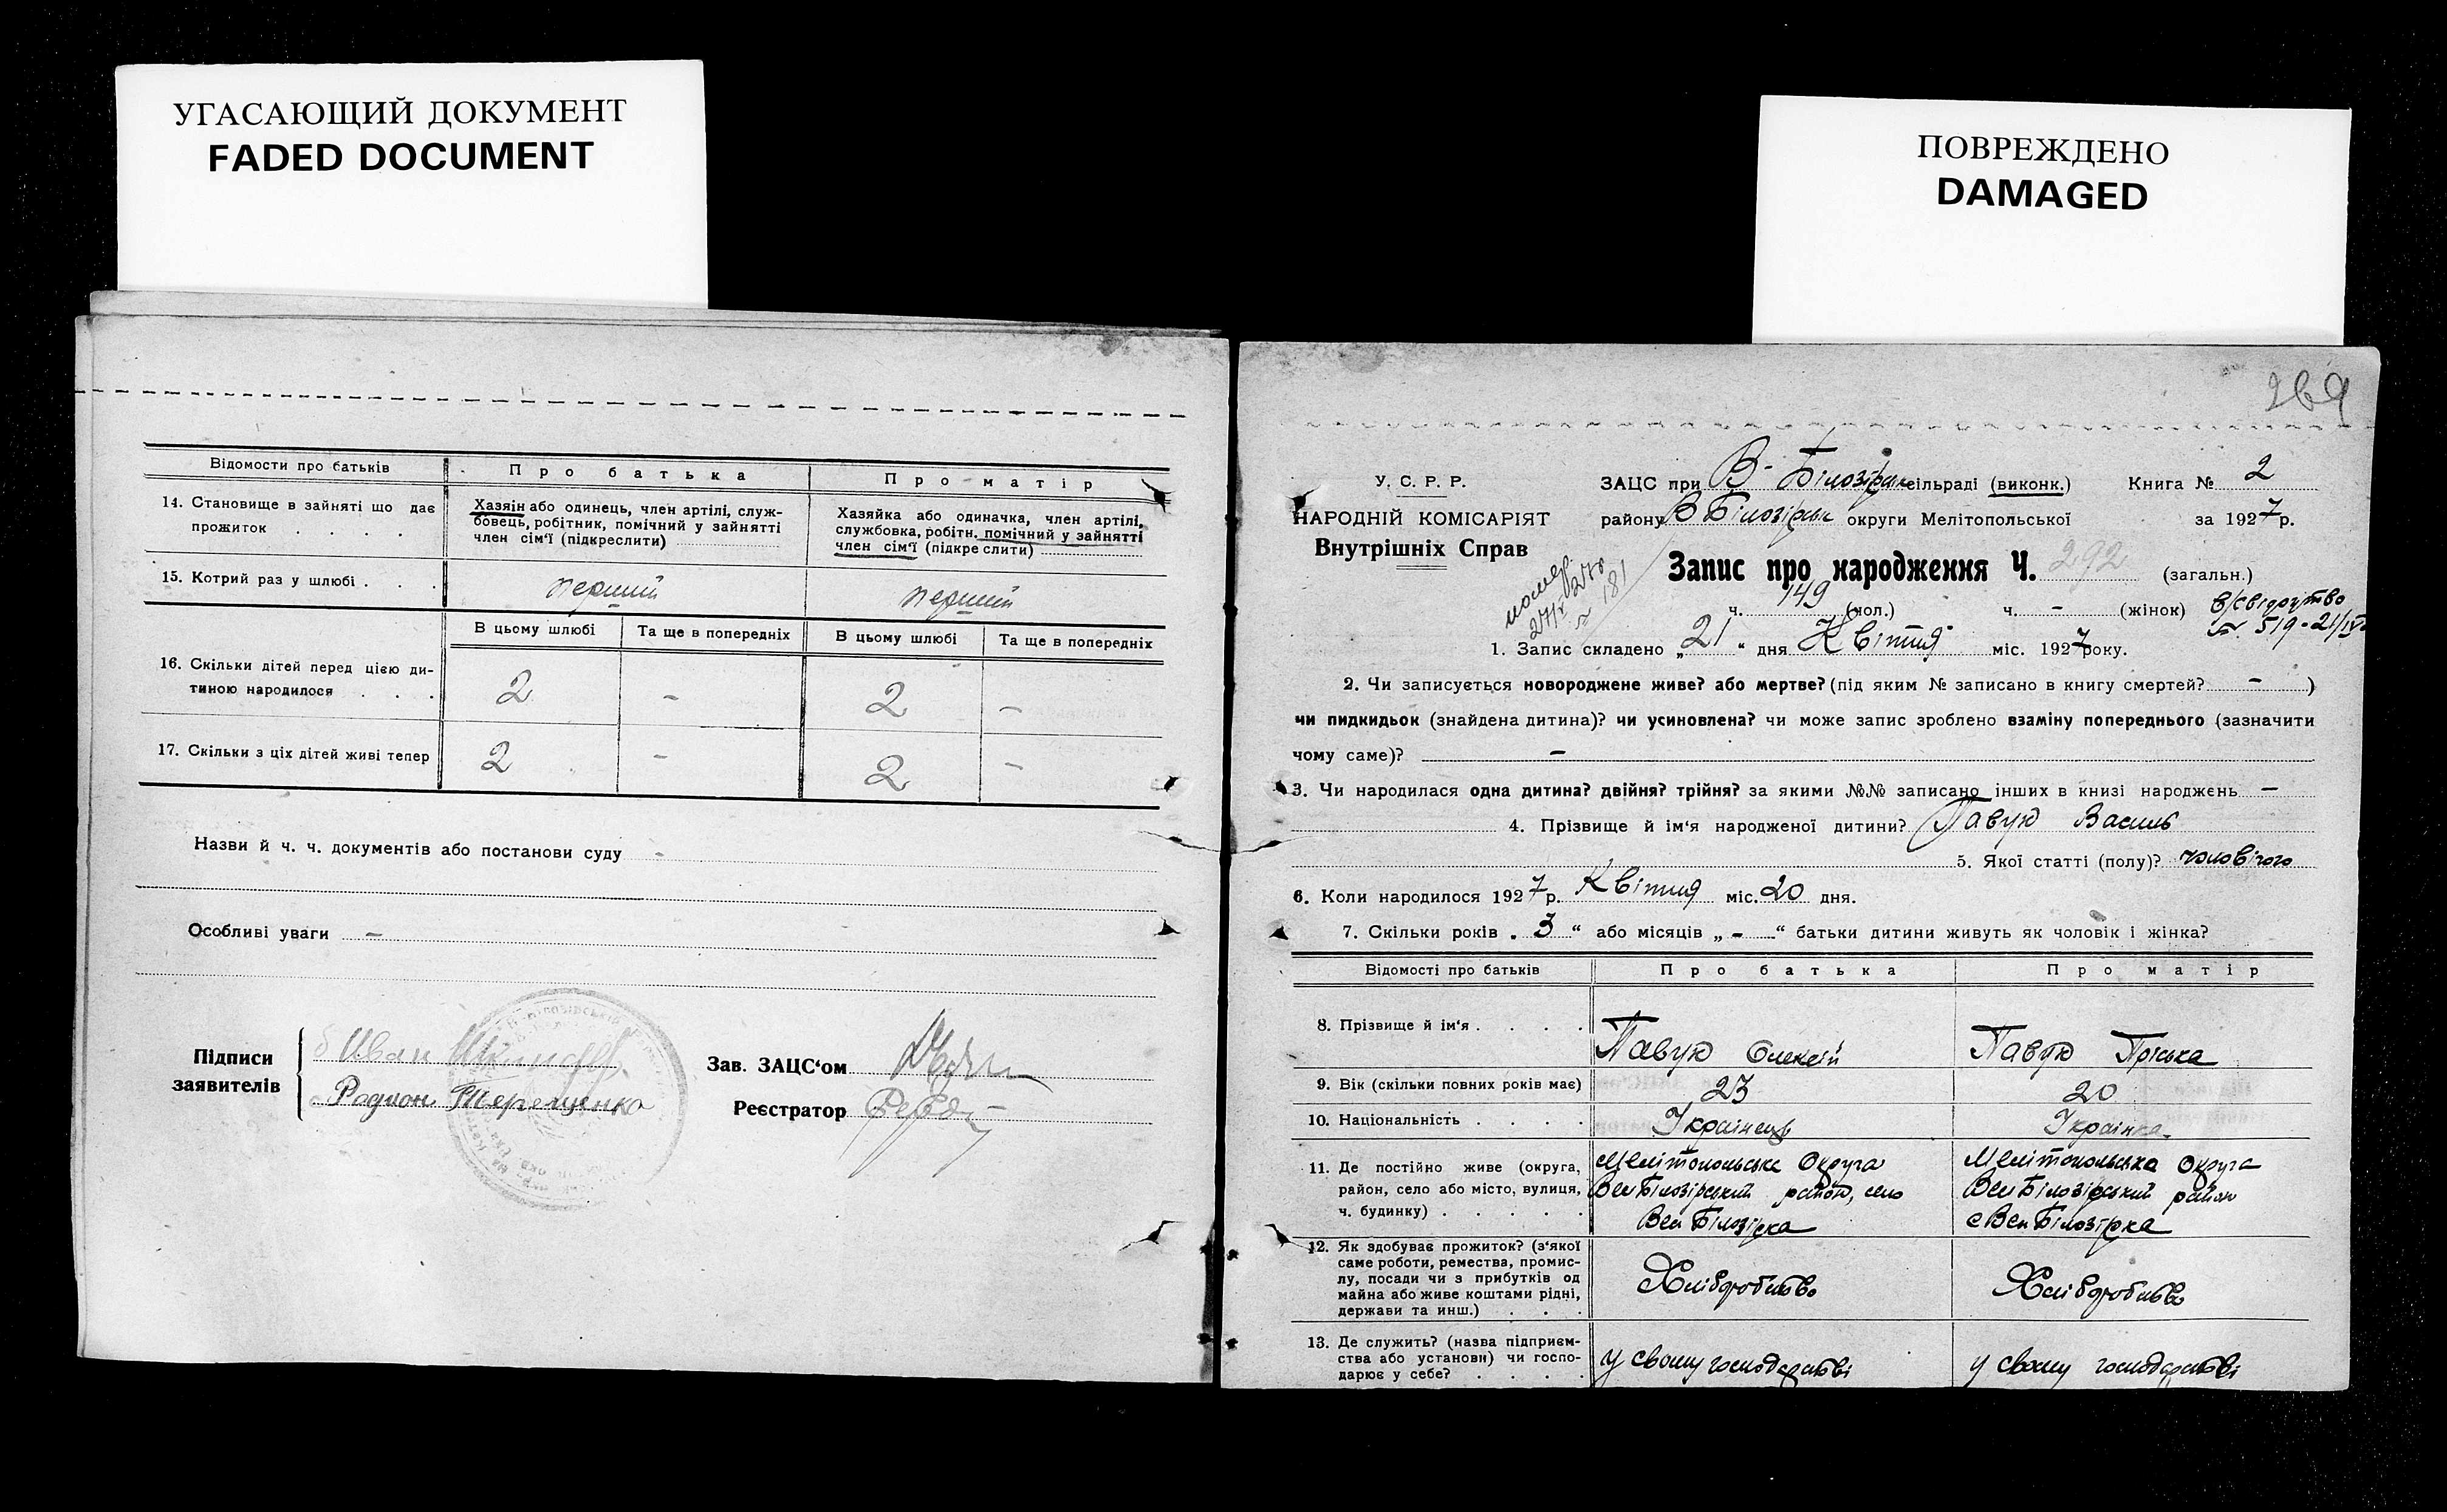 УГАСАЮЩИЙ ДОКУМЕНТ
FADED DOCUMENT
ПОВРЕЖДЕНО
DAMAGED
Відомости про батьків
Про батька
Про матір
14. Становище в зайняті що дає прожиток . . . .
Хазяін або одинець, член артілі, служ-
бовець, робітник, помічний у зайнятті
член сім'ї (підкреслити)
Хазяйка або одиначка, член артілі,
службовка, робітн. помічний у зайнятті
член сім'ї (підкреслити)
15. Котрий раз у шлюбі . . .
перший
перший
В цьому шлюбі
Та ще в попередніх
В цьому шлюбі
Та ще в попередніх
16. Скільки дітей перед цією ди-
тиною народилося . . .
2 - 2 -
17. Скільки з ціх дітей живі тепер
2 - 2 -
Назви й ч. ч. документів або постанови суду -
Особливі уваги -
Підписи
заявителів
Иван
Родион Терещенко
Зав. ЗАЦС'ом
Реєстратор
269
У. С. Р. Р.
НАРОДНІЙ КОМІСАРІЯТ
Внутрішніх Справ
ЗАЦС при В-Білозірск сільраді (виконк.) Книга № 2
району В Білозірськ округи Мелітопольської за 1927 р.
Запис про народження Ч. 292 (загальн.)
ч. 149 (чол.) ч. - (жінок)
№ 181
в/свідоцтво
№ 519 - 21/IV
1. Запис складено „21“ дня Квітня міс. 1927 року.
2. Чи записується новороджене живе? або мертве? (під яким № записано в книгу смертей? - )
чи пидкидьок (знайдена дитина)? чи усиновлена? чи може запис зроблено взаміну попереднього (зазначити
чому саме)? -
3. Чи народилася одна дитина? двійня? трійня? за якими №№ записано інших в книзі народжень -
4. Прізвище й ім'я народженої дитини? Павук Василь
5. Якої статті (полу)? чоловічого
6. Коли народилося 1927 р. Квітня міс. 20 дня.
7. Скільки років „3“ або місяців „-“ батьки дитини живуть як чоловік і жінка?
Відомості про батьків
Про батька
Про матір
8. Прізвище й ім'я . . . .
Павук Олексій
Павук Пріська
9. Вік (скільки повних років має)
23
20
10. Національність . . . .
Українець
Українка
11. Де постійно живе (округа,
район, село або місто, вулиця,
ч. будинку) . . . . .
Мелітопольська Округа
Вел Білозірський район, село
Вел Білозірка
Мелітопольська Округа
Вел Білозірський район
с Вел Білозірка
12. Як здобуває прожиток? (з'якої
саме роботи, ремества, промис-
лу, посади чи з прибутків од
майна або живе коштами рідні,
держави та инш.) . . .
Хліборобство
Хліборобство
13. Де служить? (назва підприєм-
ства або установи) чи госпо-
дарює у себе? . . . .
у своему господарстві
у своему господарстві